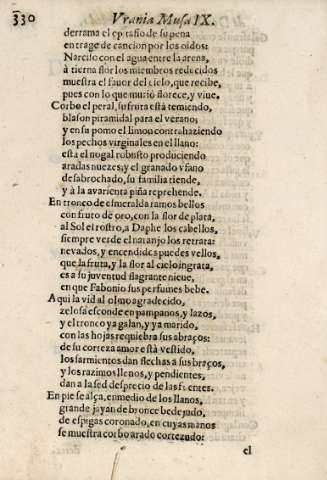 330 Vrania Musa IX.
derrama el epitafio de su pena
en trage de cancion por los oidos:
Narciso con el agua entre la arena,
à tierna flor los miembros reducidos
muestra el fauor del cielo, que recibe,
pues con lo que murió florece, y viue.
Corbo el peral, su fruta està temiendo,
blason piramidal para el verano;
y en su pomo el limon contrahaziendo
los pechos virginales en el llano:
esta el nogal robusto produciendo
aradas nuezes; y el granado vfano
desabrochado, su familia tiende,
y à la avarienta piña reprehende.
En tronco de esmeralda ramos bellos
con fruto de oro, con la flor de plata,
al Sol el rostro, a Daphe los cabellos,
siempre verde el naranjo los retrata:
nevados, y encendidos puedes vellos,
que la fruta, y la flor al cielo ingrata,
es a su juventud flagrante nieue,
en que Fabonio sus perfumes bebe.
Aqui la vid al olmo agradecido,
zelosa esconde en pampanos, y lazos,
y el tronco ya galan, y ya marido,
con las hojas requiebra sus abraços:
de su corteza amor està vestido,
los sarmientos dan flechas a sus braços,
y los razimos llenos, y pendientes,
dan a la sed desprecio de las fuentes.
En pie se alça, en medio de los llanos,
grande jayan de bronce bedejudo,
de espigas coronado, en cuyas manos
se muestra corbo arado cortezudo:
el